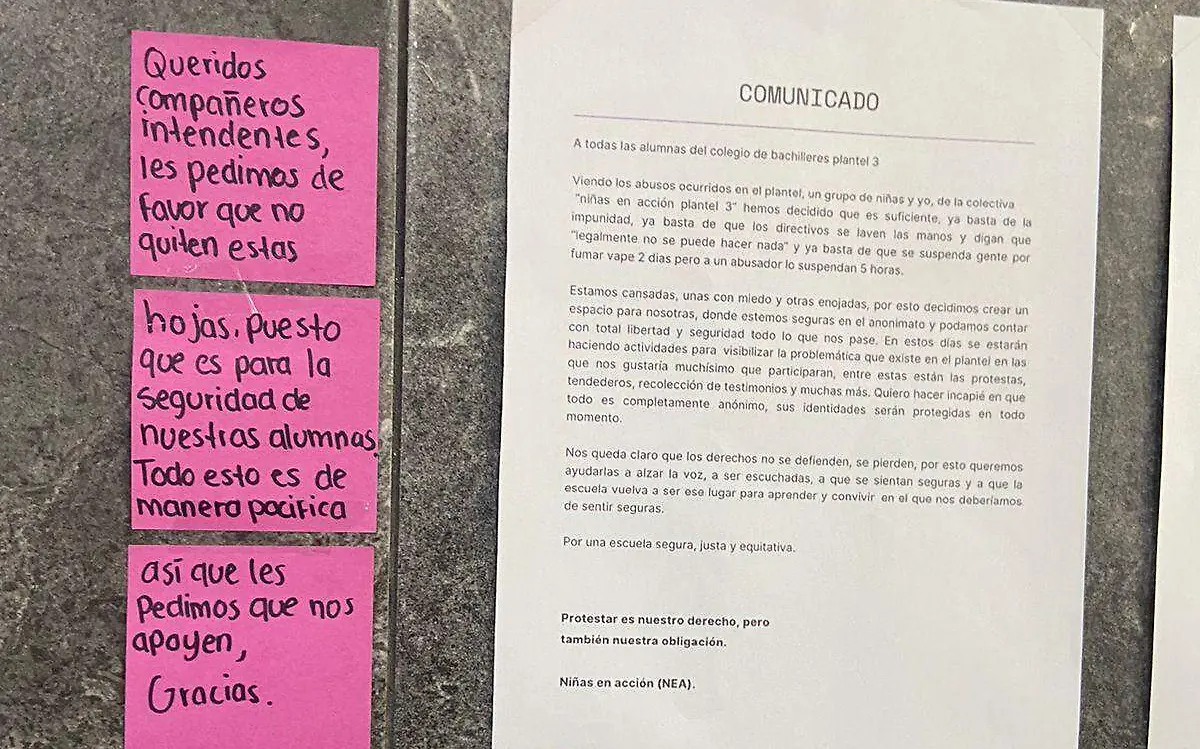 Queridos
compañeros
intendentes,
les pedimos de
favor que no
quiten estas
hojas. puesto
que es para la
seguridad de
nuestras alumnas.
Todo esto es de
manera pacifica
así que les
Pedimos que nos
apoyen,
Gracias.
COMUNICADO
A todas las alumnas del colegio de bachilleres plantel 3
Viendo los abusos ocurridos en el plantel, un grupo de niñas y yo, de la colectiva
"niñas en acción plantel 3" hemos decidido que es suficiente, ya basta de la
impunidad, ya basta de que los directivos se laven las manos y digan que
"legalmente no se puede hacer nada" y ya basta de que se suspenda gente por
fumar vape 2 dias pero a un abusador lo suspendan 5 horas.
Estamos cansadas, unas con miedo y otras enojadas, por esto decidimos crear un
espacio para nosotras, donde estemos seguras en el anonimato y podamos contar
con total libertad y seguridad todo lo que nos pase. En estos días se estarán
haciendo actividades para visibilizar la problemática que existe en el plantel en las
que nos gustaría muchísimo que participaran, entre estas están las protestas,
tendederos, recolección de testimonios y muchas más. Quiero hacer incapié en que
todo es completamente anónimo, sus identidades serán protegidas en todo
momento.
Nos queda claro que los derechos no se defienden, se pierden, por esto queremos
ayudarlas a alzar la voz, a ser escuchadas, a que se sientan seguras y a que la
escuela vuelva a ser ese lugar para aprender y convivir en el que nos deberíamos
de sentir seguras.
Por una escuela segura, justa y equitativa.
Protestar es nuestro derecho, pero
también nuestra obligación.
Niñas en acción (NEA).